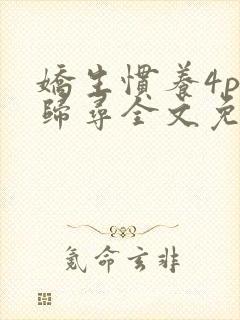 嬌生慣養4p
歸尋全文免
氪命玄非